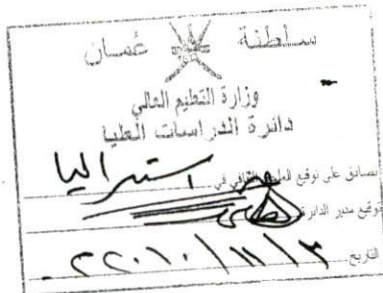 سلطنة عُمان
وزارة التعليم العالي
دائرة الدراسات العليا
نصادق على توقيع الملحق الثقافي في استراليا
توقيع مدير الدائرة
التاريخ